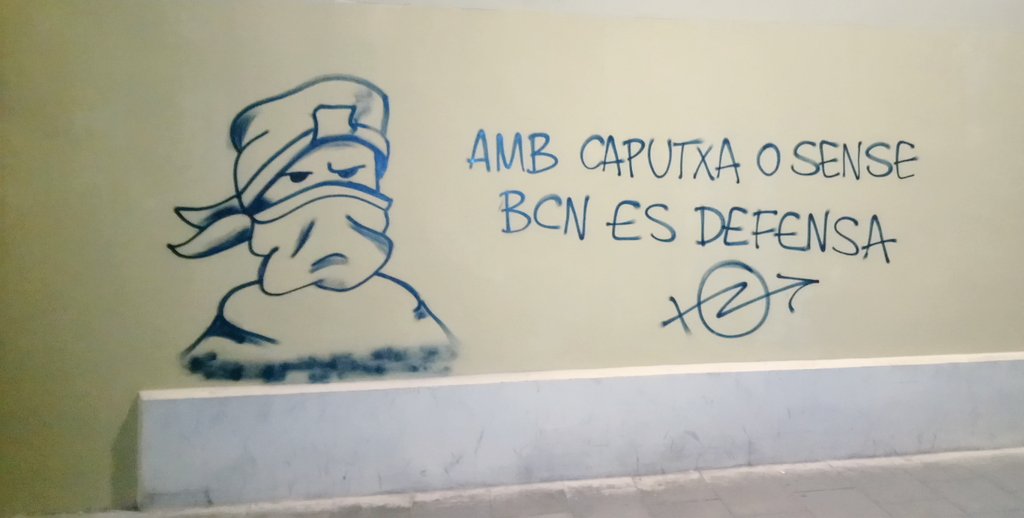 AMB CAPUTXA O SENSE
BCN ES DEFENSA